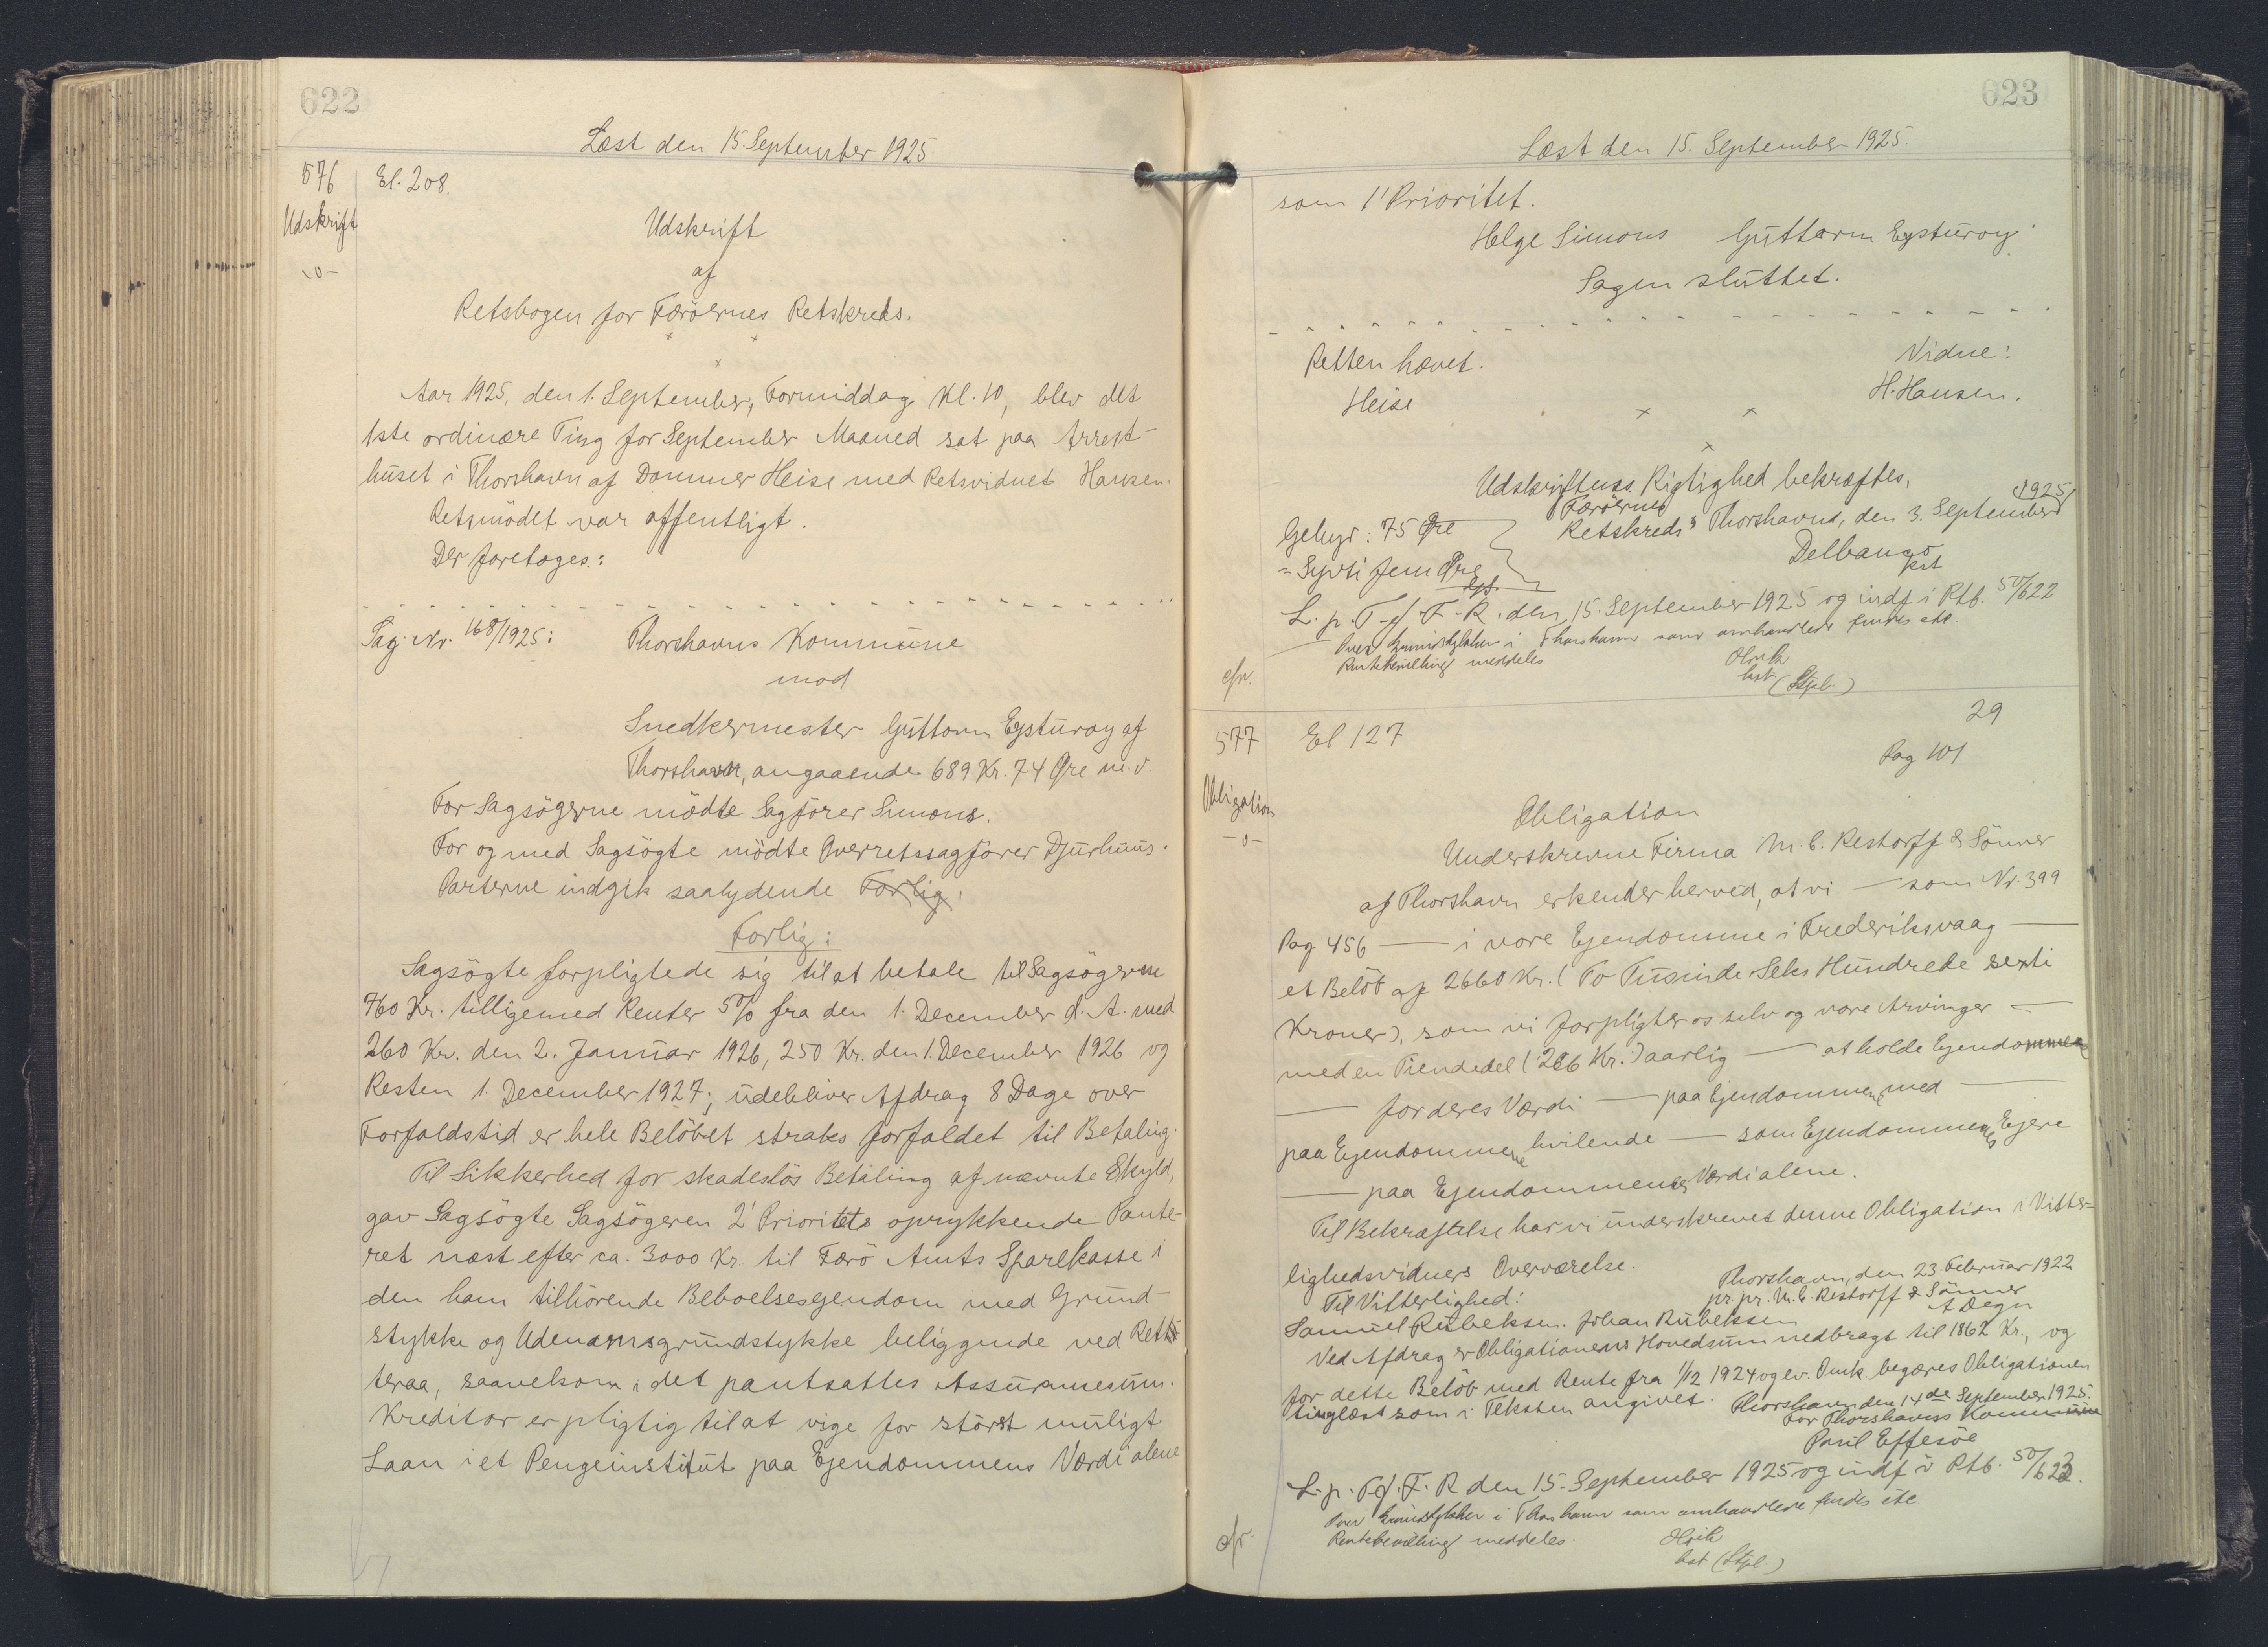 622
Læst den 15. September 1925.
576
El. 208.
Udskrift
-o-
Udskrift
af
Retsbogen for Færöernes Retskreds.
Aar 1925, den 1. September, Formiddag Kl. 10, blev det
1ste ordinære Ting for September Maaned sat paa Arrest-
huset i Thorshavn af Dommer Heise med Retsvidnet Hansen.
Retsmödet var offentligt.
Der foretoges:
Sag Nr. 168/1925:
Thorshavns Kommune
mod
Snedkermester Guttorm Eysturoy af
Thorshavn, angaaende 689 Kr. 74 Øre m.v.
For Sagsögerne mödte Sagförer Simons.
For og med Sagsögte mödte Overretssagförer Djurhuus.
Parterne indgik saalydende Forlig:
Forlig:
Sagsögte forpligtede sig til at betale til Sagsögerne
760 Kr. tilligemed Renter 5% fra den 1. December d. A. med
260 Kr. den 2. Januar 1926, 250 Kr. den 1. December 1926 og
Resten 1. December 1927; udebliver Afdrag 8 Dage over
Forfaldstid er hele Belöbet straks forfaldet til Betaling.
Til Sikkerhed for skadeslös Betaling af nævnte Skyld,
gav Sagsögte Sagsögeren 2' Prioritets oprykkende Pante-
ret næst efter ca. 3000 Kr. til Færö Amts Sparekasse i
den ham tilhörende Beboelsesejendom med Grund-
stykke og Udenomsgrundstykke beliggende ved Rett
teraa, saavelsom i det pantsattes Assurancesum.
Kreditor er pligtig til at vige for störst muligt
Laan i et Pengeinstitut paa Ejendommens Værdi alene
623
Læst den 15. September 1925.
som 1' Prioritet.
Helge Simons Guttorm Eysturoy
Sagen sluttet.
Retten hævet.
Vidne:
Heise
H. Hansen.
Udskriftens Rigtighed bekræftes,
Færöernes
Retskreds Thorshavns, den 3. September 1925
Gebyr: 75 Øre
= Syvti fem Øre
Delbanco
kst
L. p. T. f. F. R. den 15. September 1925 og indf i Ptb. 50/622
Over Grundstykker i Thorshavn som omhandlede findes etc.
Rentebevilling meddeles
kst (Stpl.)
577
El 127
29
Pag 101
Obligation
-o-
Obligation
Underskrevne Firma M. C. Restorff & Sönner
af Thorshavn erkender herved, at vi — som Nr. 399
Pag 456 — i vore Ejendomme i Frederiksvaag —
et Belöb af 2660 Kr. (To Tusinde Seks Hundrede sexti
Kroner), som vi forpligter os selv og vore Arvinger —
med en Tiendedel (266 Kr.) aarlig — at holde Ejendommene
— for deres Værdi — paa Ejendommene med —
paa Ejendommene hvilende — som Ejendommenes Ejere
— paa Ejendommenes Værdi alene.
Til Bekræftelse har vi underskrevet denne Obligation i Vitter-
lighedsvidners Overværelse.
Thorshavn, den 23. Februar 1922
Til Vitterlighed:
pr. pr. M. C. Restorff & Sönner
A Degn
Samuel Rubeksen. Johan Rubeksen
Ved Afdrag er Obligationens Hovedsum nedbragt til 1862 Kr., og
for dette Belöb med Rente fra 1/12 1924 og ev. Omk. begæres Obligationen
tinglæst som i Teksten angivet.
Thorshavn den 14de September 1925.
For Thorshavns Kommune
Poul Effersöe
L. p. T. f. F. R den 15. September 1925 og indf i Ptb. 50/622.
Over Grundstykker i Thorshavn som omhandlede findes etc
Rentebevilling meddeles.
kst (Stpl.)